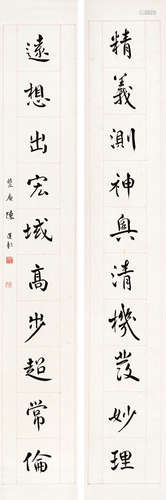 精義測神奧清機發妙理
遠想出宏域高步超常倫